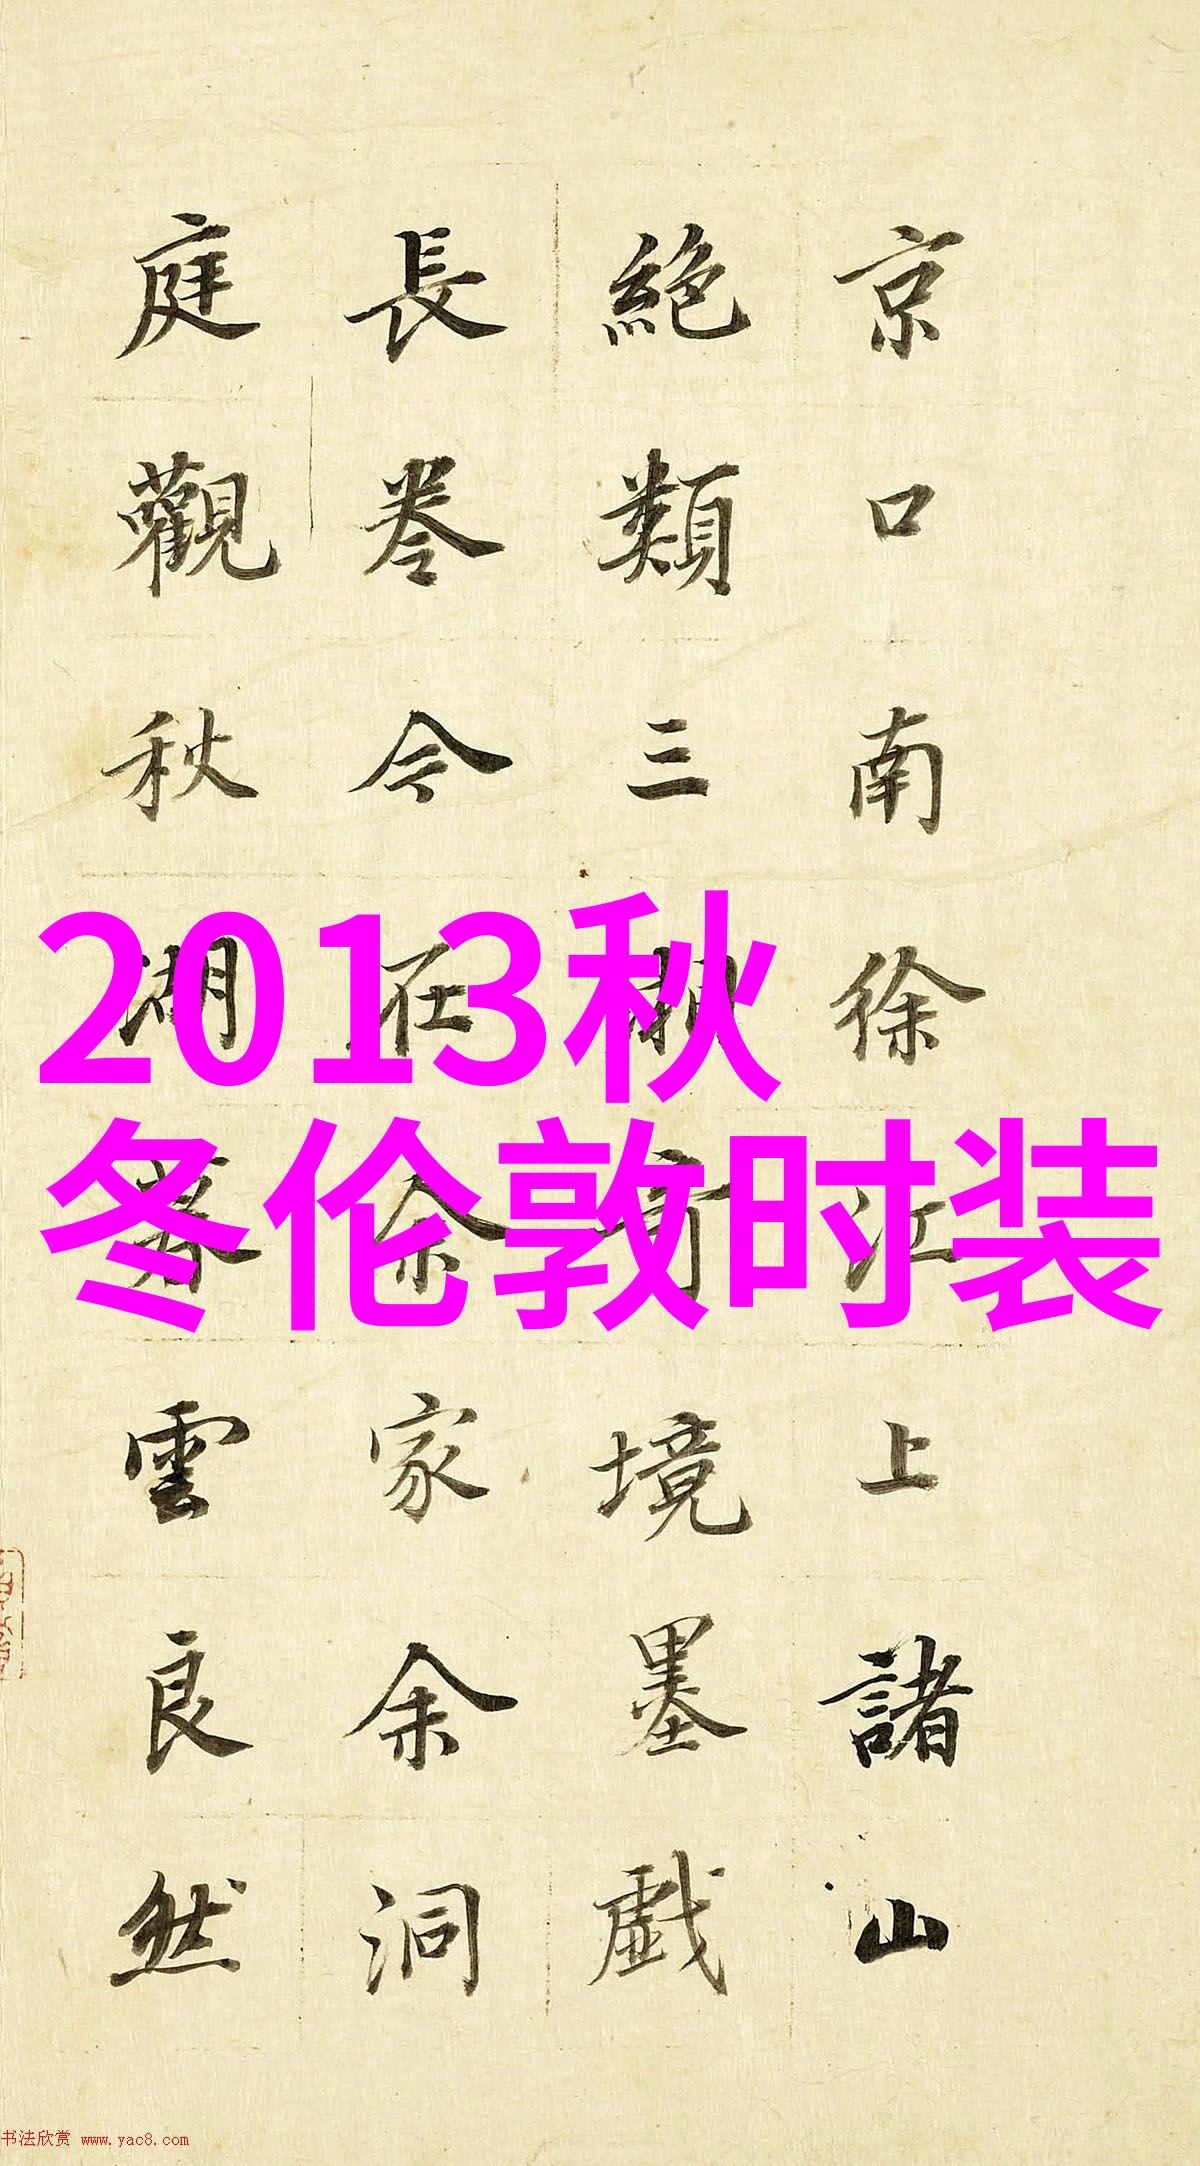 京口南徐江上諸山
絶類三湘奇境墨戲
長卷今在余家余洞
庭觀秋湖暮雲良然
2013秋
冬伦敦时装
书法欣赏 www.yac8.com